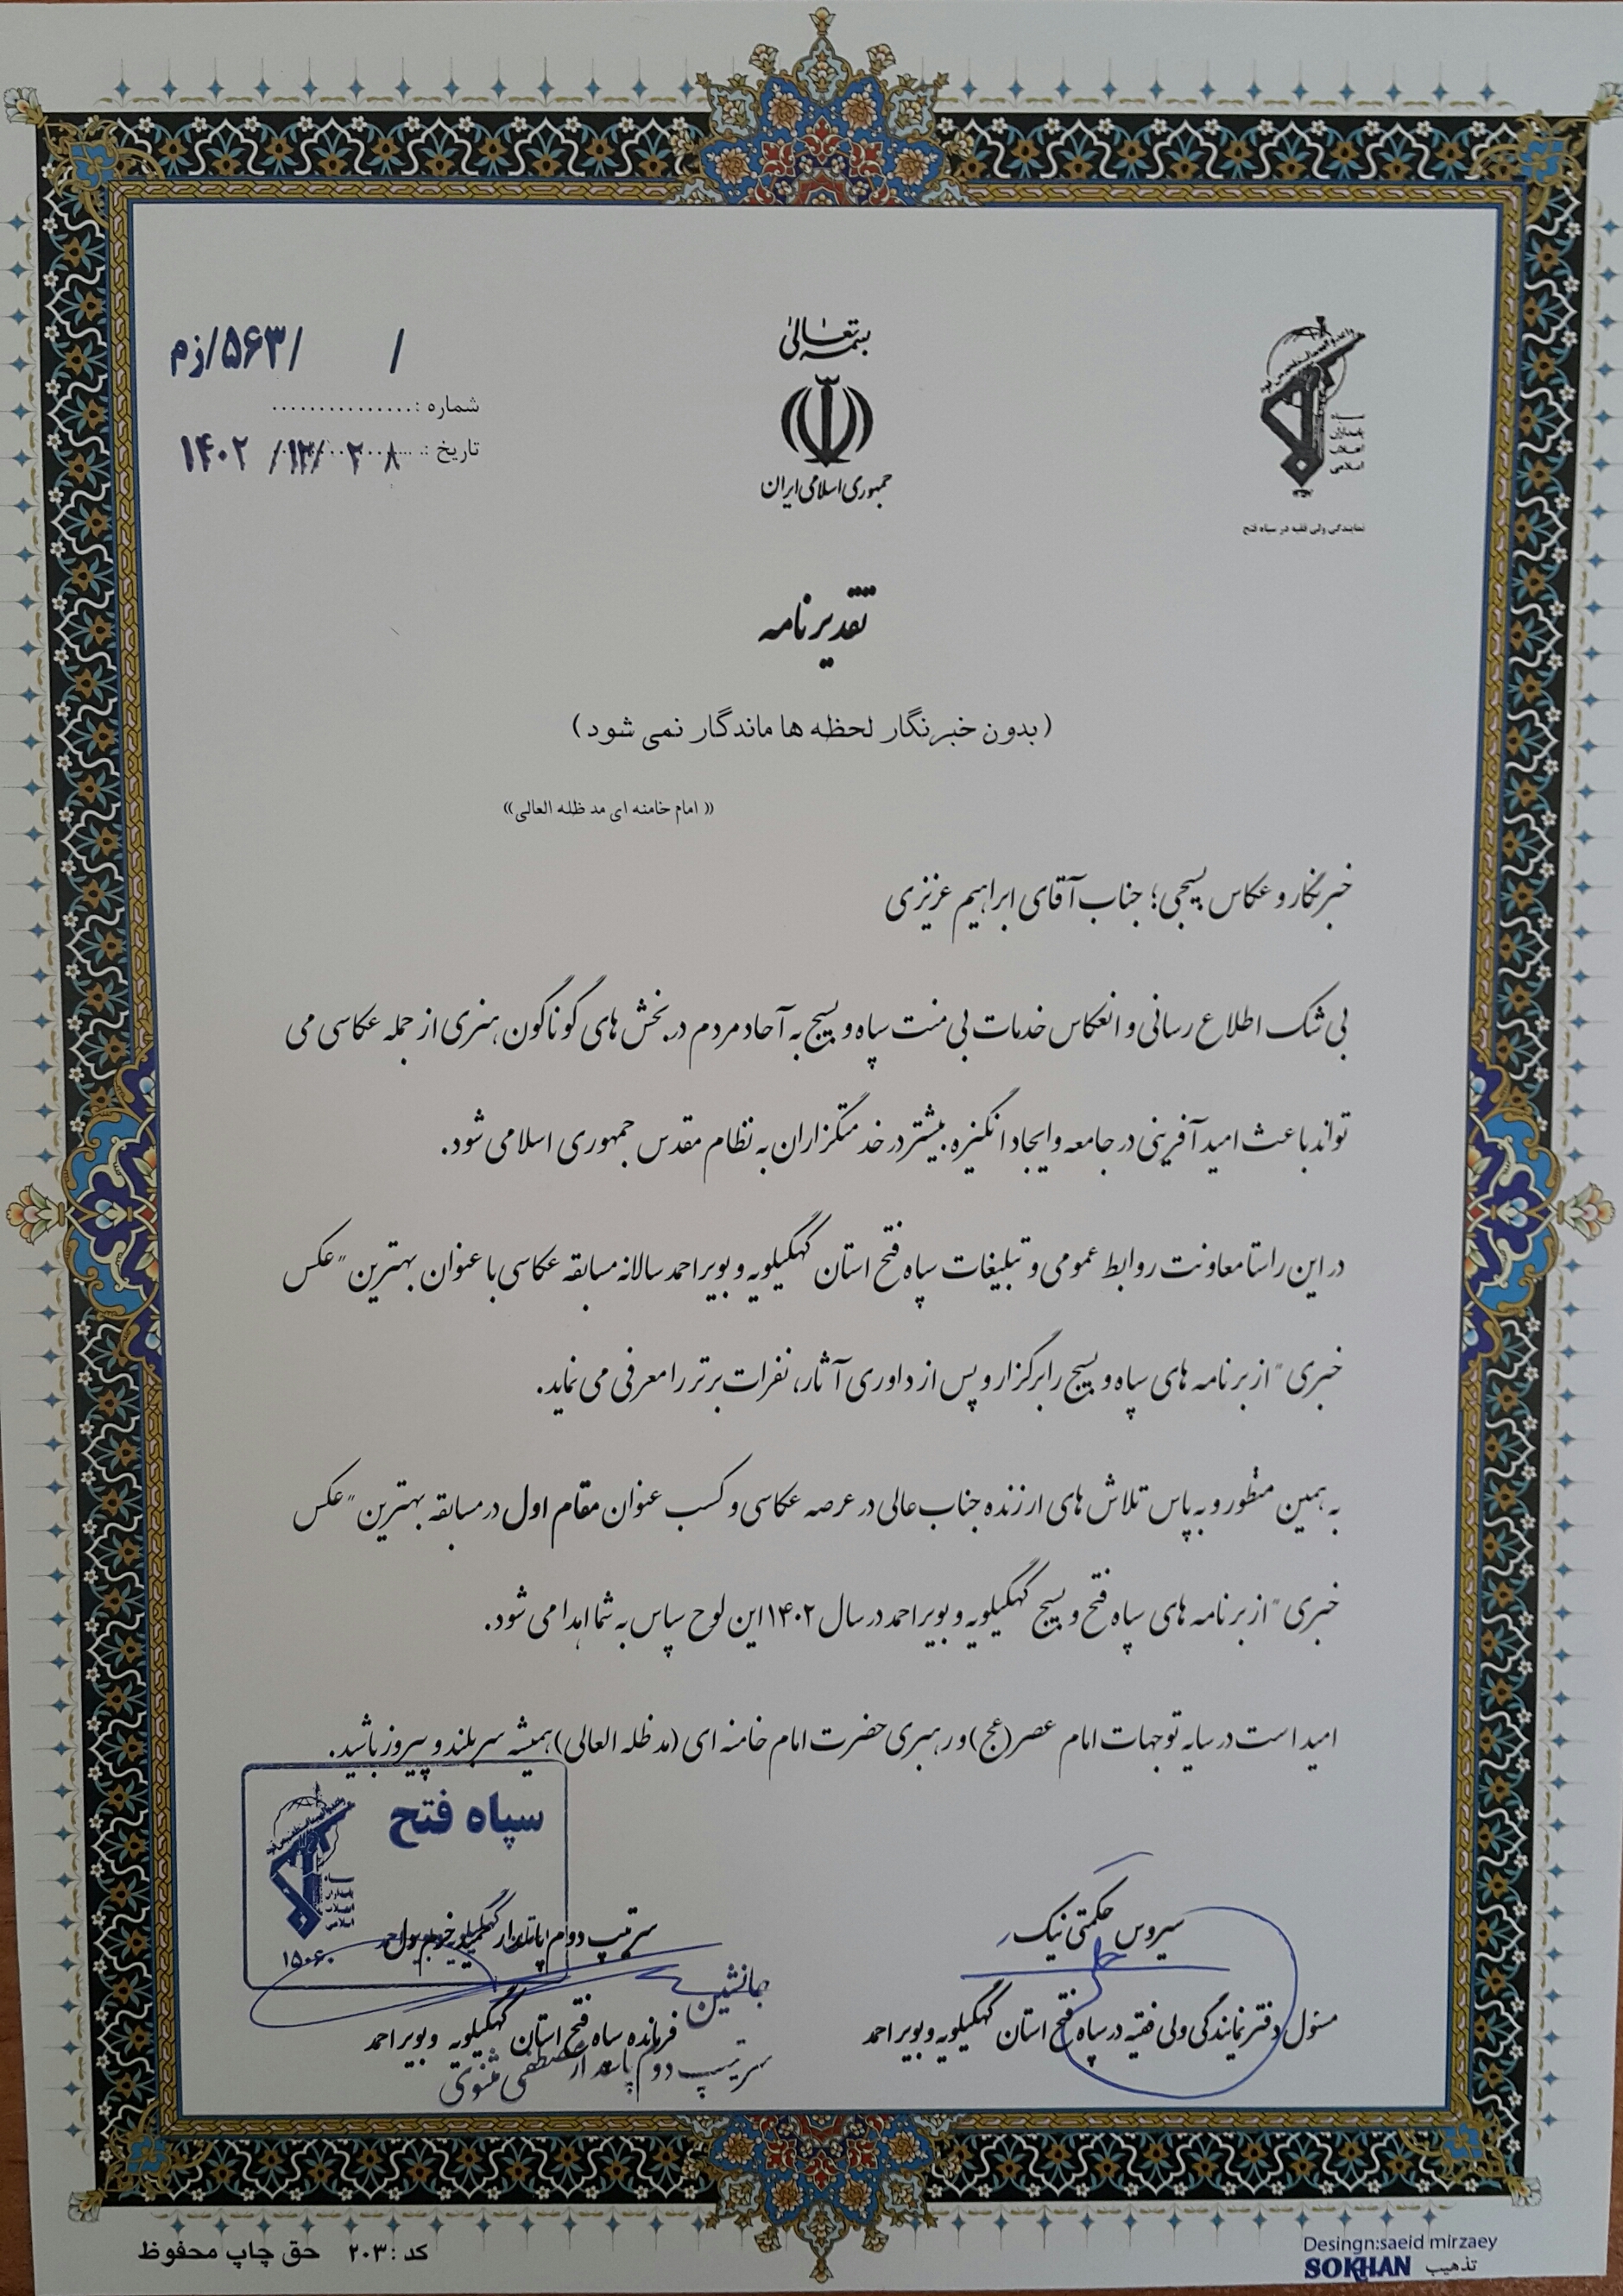 بسمه تعالی
جمهوری اسلامی ایران
سپاه
پاسداران
انقلاب
اسلامی
نمایندگی ولی فقیه در سپاه فتح
/ /۵۶۳/زم
شماره :................
تاریخ : ۱۴۰۲ /۱۲/ ۲۰۸
تقدیرنامه
(بدون خبرنگار لحظه ها ماندگار نمی شود)
(( امام خامنه ای مد ظله العالی))
خبرنگار و عکاس بسیجی؛ جناب آقای ابراهیم عزیزی
بی شک اطلاع رسانی و انعکاس خدمات بی منت سپاه و بسیج به آحاد مردم در بخش های گوناگون هنری از جمله عکاسی می
تواند باعث امید آفرینی در جامعه و ایجاد انگیزه بیشتر در خدمتگزاران به نظام مقدس جمهوری اسلامی شود.
در این راستا معاونت روابط عمومی و تبلیغات سپاه فتح استان کهگیلویه و بویراحمد سالانه مسابقه عکاسی با عنوان بهترین "عکس
خبری" از برنامه های سپاه و بسیج را برگزار و پس از داوری آثار، نفرات برتر را معرفی می نماید.
به همین منظور و به پاس تلاش های ارزنده جناب عالی در عرصه عکاسی و کسب عنوان مقام اول در مسابقه بهترین "عکس
خبری" از برنامه های سپاه فتح و بسیج کهگیلویه و بویراحمد در سال ۱۴۰۲ این لوح سپاس به شما اهدا می شود.
امید است در سایه توجهات امام عصر(عج) و رهبری حضرت امام خامنه ای (مد ظله العالی) همیشه سربلند و پیروز باشید.
سپاه فتح
سپاه
پاسداران
انقلاب
اسلامی
۱۵۰۶۰
سیروس حکمتی نیک
مسئول دفتر نمایندگی ولی فقیه در سپاه فتح استان کهگیلویه و بویراحمد
سرتیپ دوم پاسدار
جانشین
فرمانده سپاه فتح استان کهگیلویه و بویراحمد
سرتیپ دوم پاسدار مصطفی مثنوی
کد :۲۰۳ حق چاپ محفوظ
Desingn:saeid mirzaey
SOKHAN تذهیب